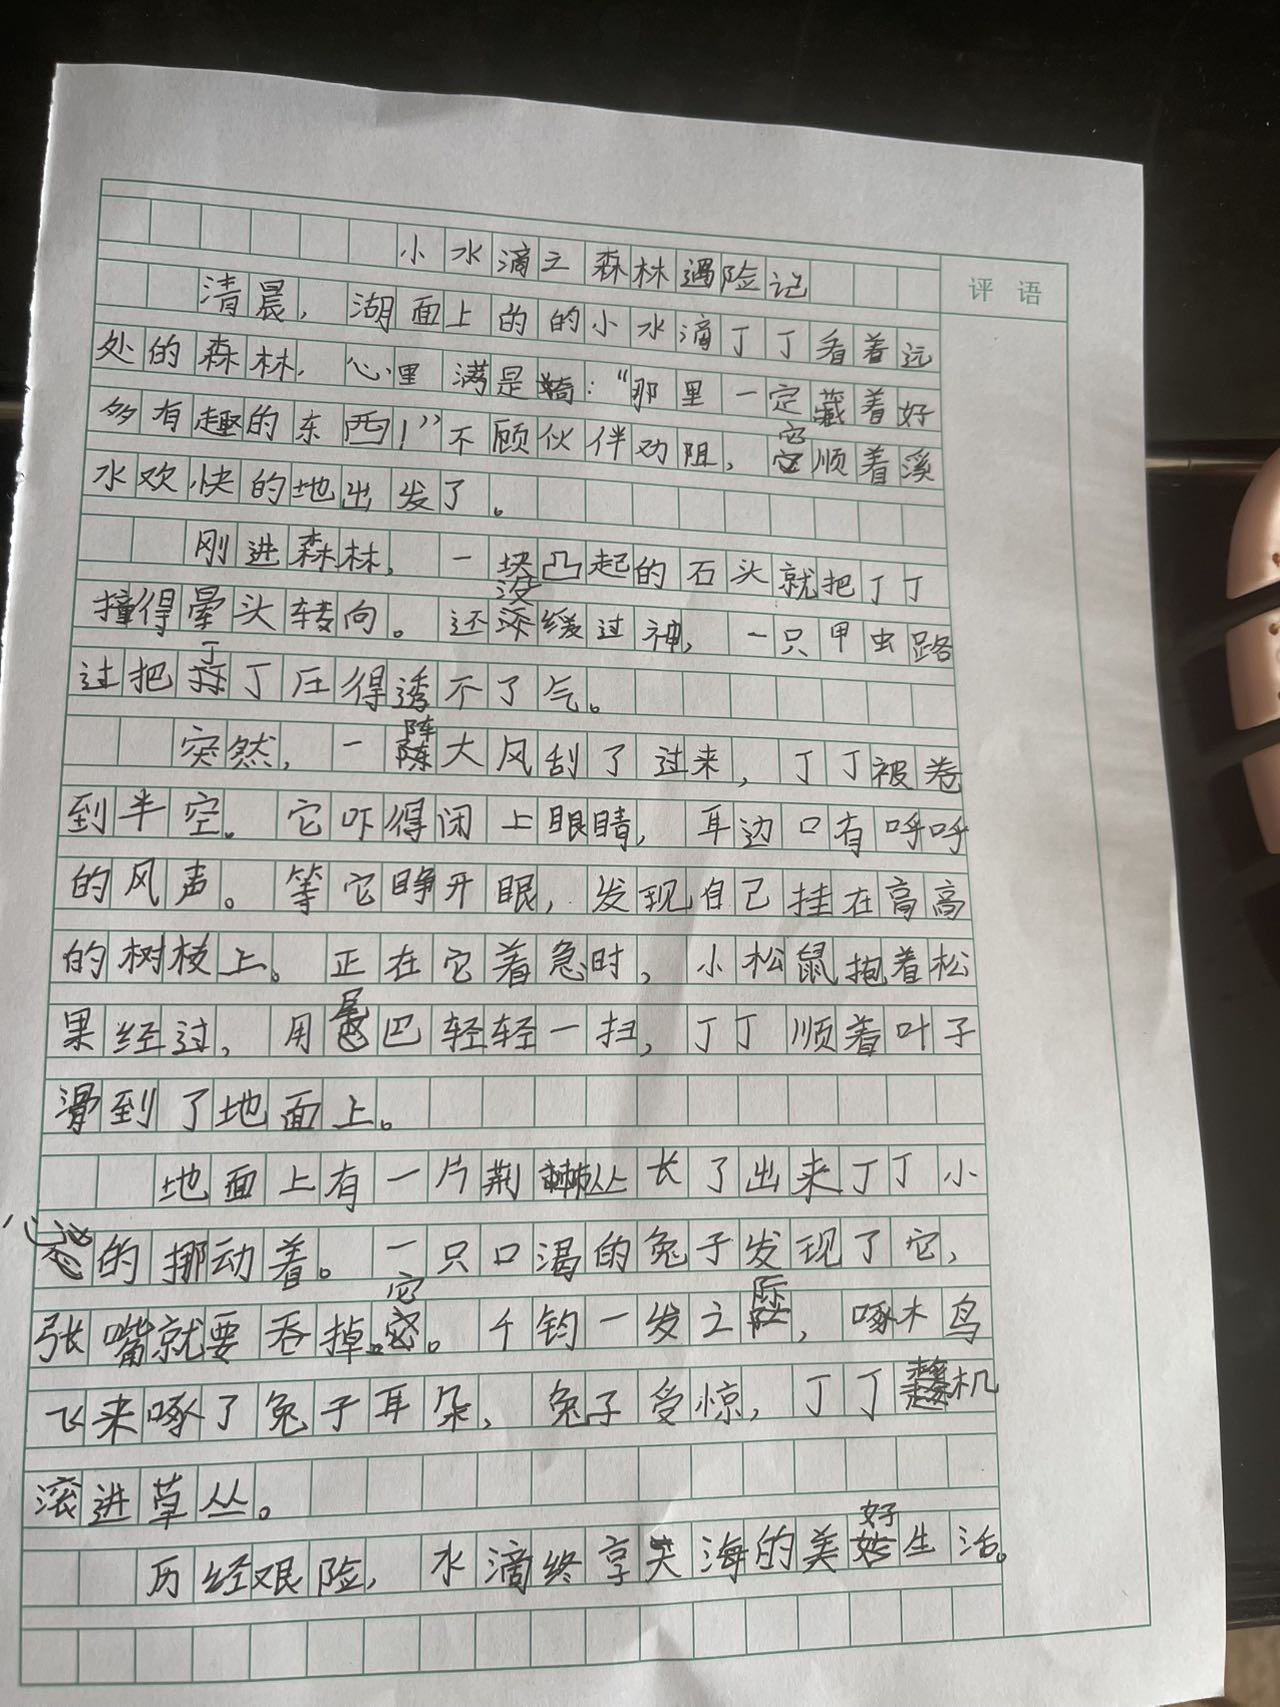 小水滴之森林遇险记
评语
清晨，湖面上的的小水滴丁丁看着远
处的森林，心里满是：“那里一定藏着好
多有趣的东西！”不顾伙伴劝阻，它顺着溪
水欢快的地出发了。
刚进森林，一块凸起的石头就把丁丁
撞得晕头转向。还没缓过神，一只甲虫路
过把丁丁压得透不了气。
突然，一阵大风刮了过来，丁丁被卷
到半空。它吓得闭上眼睛，耳边只有呼呼
的风声。等它睁开眼，发现自己挂在高高
的树枝上。正在它着急时，小松鼠抱着松
果经过，用尾巴轻轻一扫，丁丁顺着叶子
滑到了地面上。
地面上有一片荆棘丛长了出来丁丁小
心的挪动着。一只口渴的兔子发现了它，
张嘴就要吞掉它。千钧一发之际，啄木鸟
飞来啄了兔子耳朵，兔子受惊，丁丁趁机
滚进草丛。
历经艰险，水滴终享大海的美好生活。